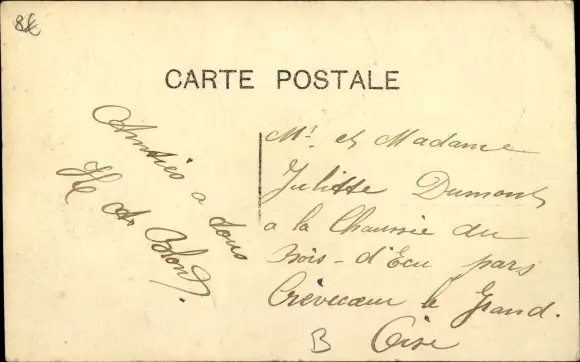 8€
CARTE POSTALE
Amitiés a tous
H de Blond.
Mr. et Madame
Julitte Dumont
a la Chaussée du
Bois-d'Ecu pars
Crèvecœur le Grand.
Oise
B